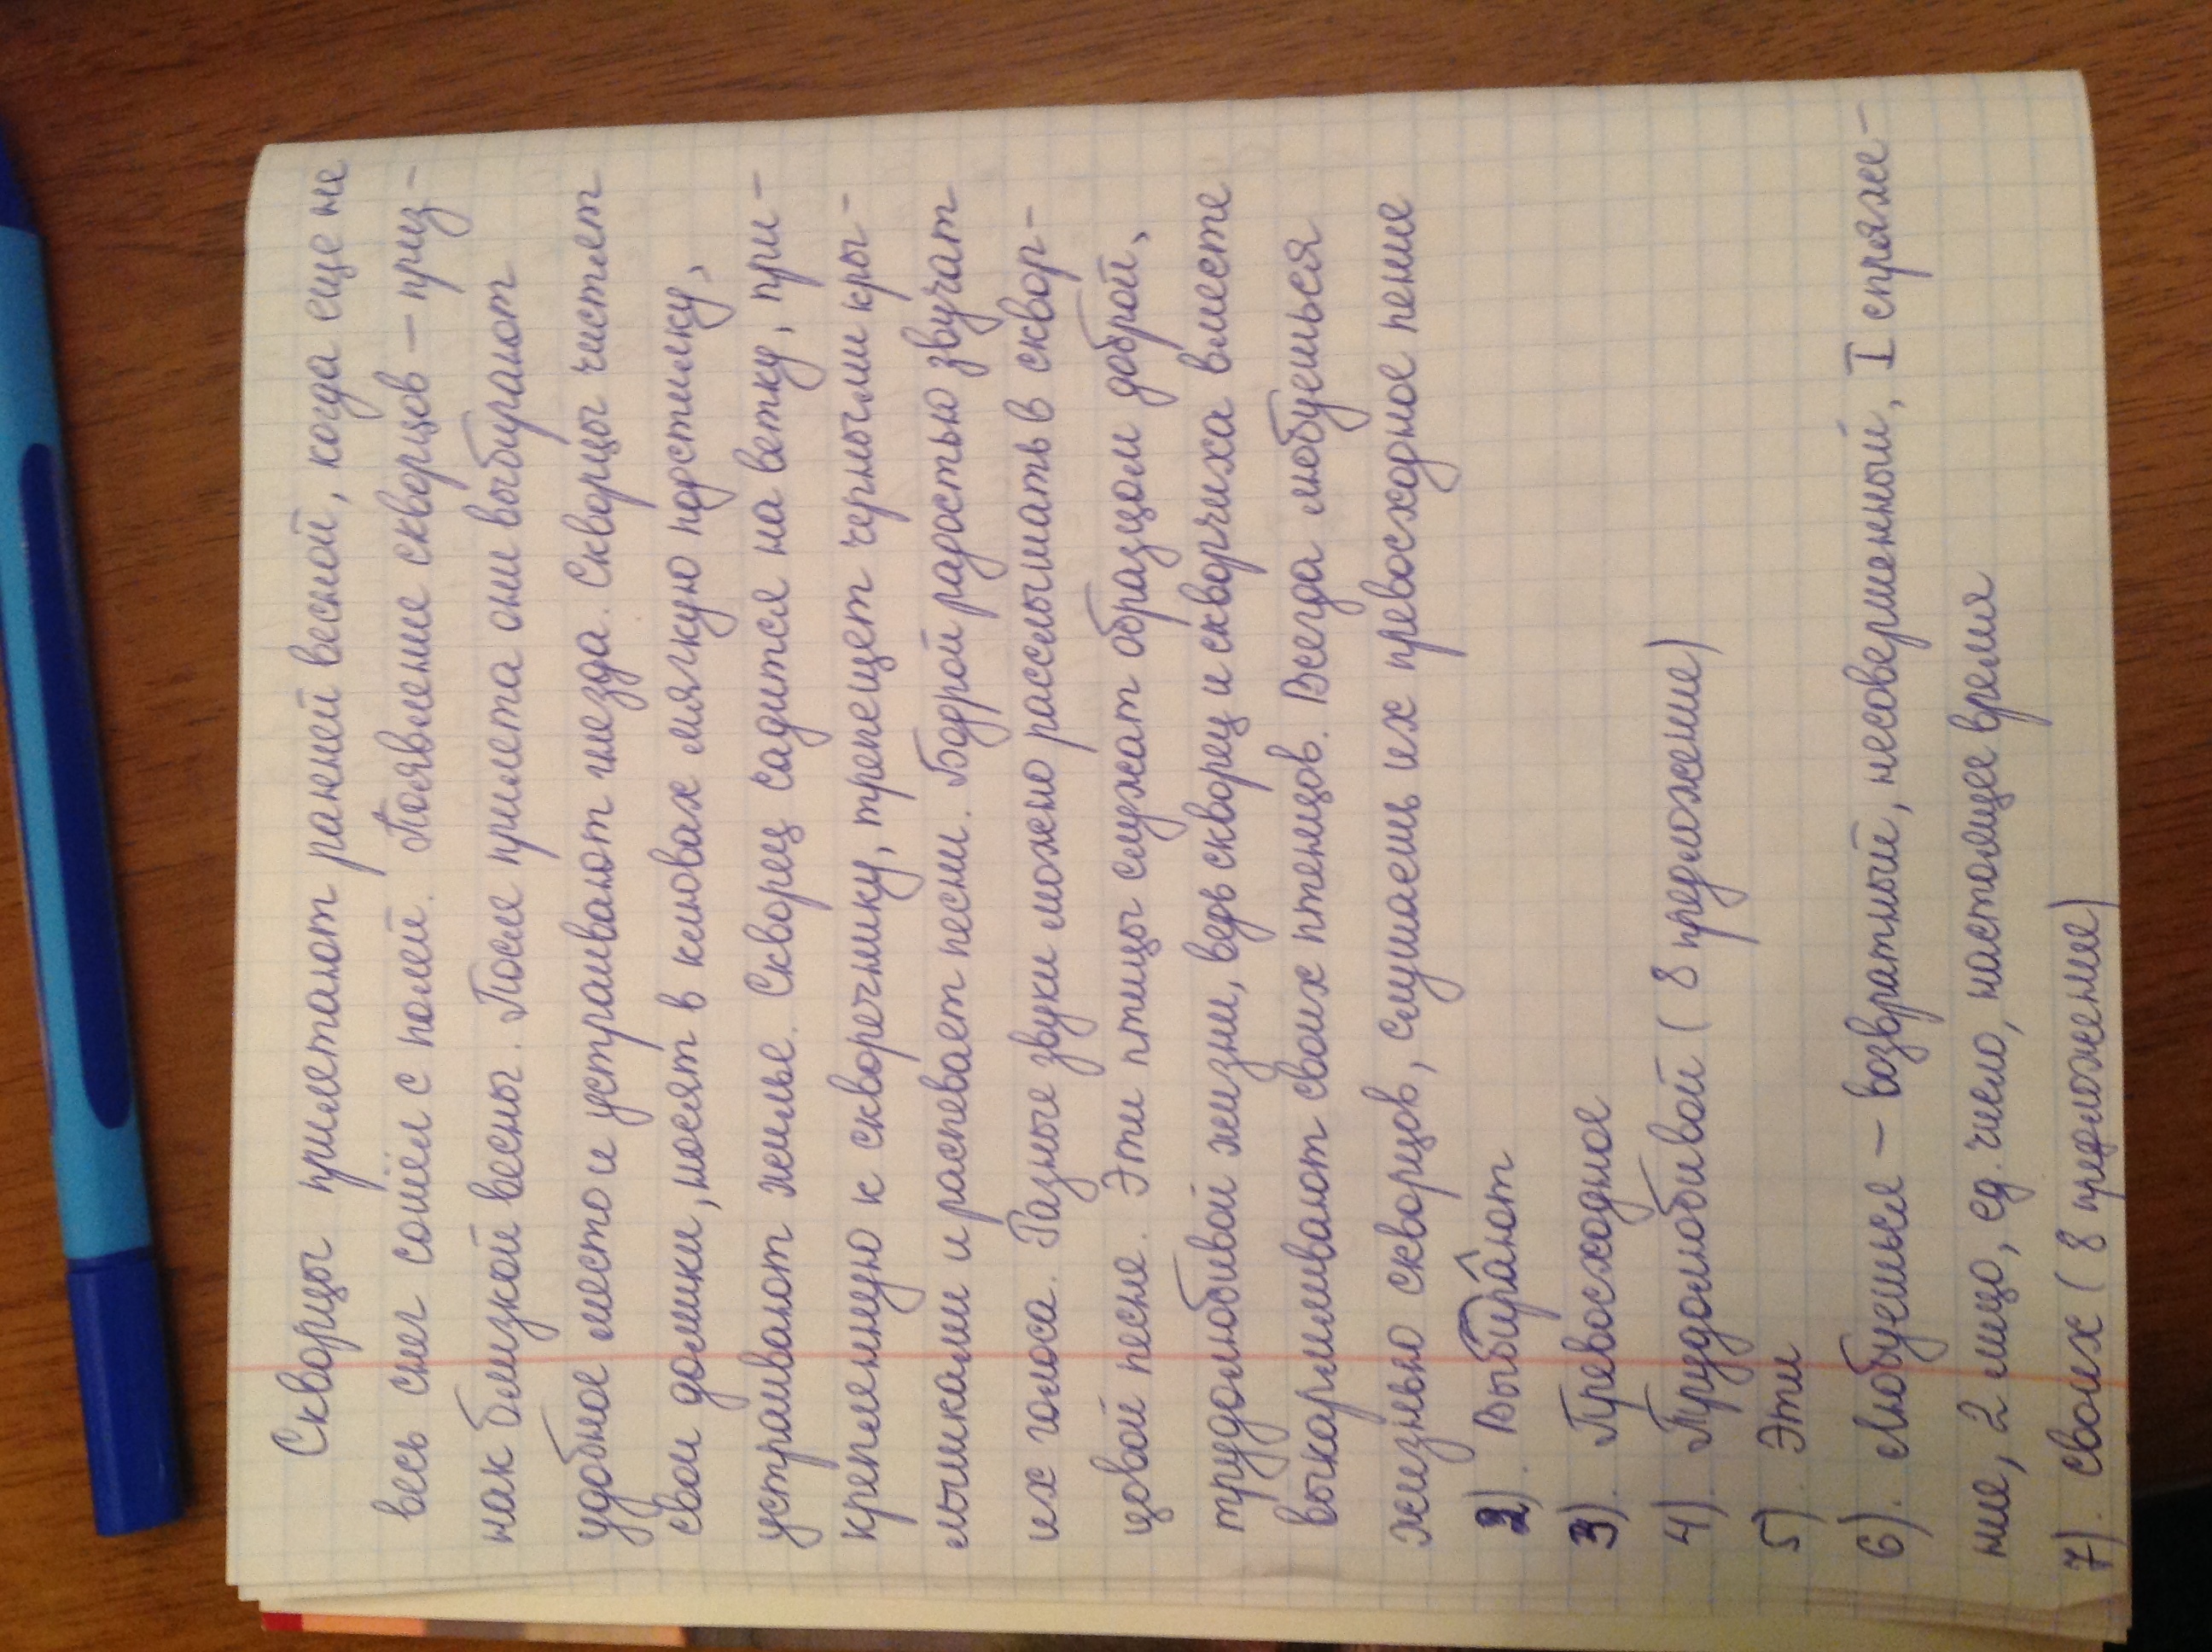 Скворцы прилетают ранней весной, когда еще не
весь снег сошёл с полей. Появление скворцов – приз-
нак близкой весны. После прилета они выбирают
удобное место и устраивают гнезда. Скворцы чистят
свои домики, носят в клювах мягкую подстилку,
устраивают жилье. Скворец садится на ветку, при-
крепленную к скворечнику, трепещет черными кры-
лышками и распевает песни. Бодрой радостью звучат
их голоса. Разные звуки можно расслышать в сквор-
цовой песне. Эти птицы служат образцом доброй,
трудолюбивой жизни, ведь скворец и скворчиха вместе
выкармливают своих птенцов. Всегда любуешься
жизнью скворцов, слушаешь их превосходное пение
2). Выбирают
3). Превосходное
4). Трудолюбивой ( 8 предложение)
5). Эти
6). Любуешься – возвратный, несовершенный, I спряже-
ние, 2 лицо, ед. число, настоящее время
7). своих ( 8 предложение)